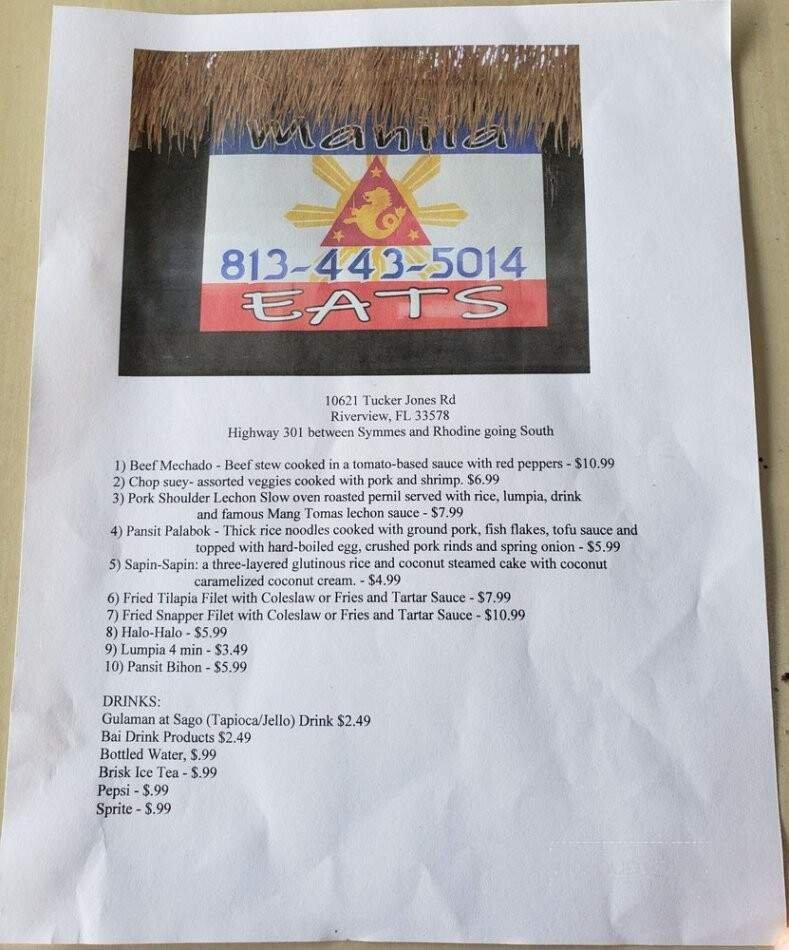 Manila
813-443-5014
EATS
10621 Tucker Jones Rd
Riverview, FL 33578
Highway 301 between Symmes and Rhodine going South
1) Beef Mechado - Beef stew cooked in a tomato-based sauce with red peppers - $10.99
2) Chop suey- assorted veggies cooked with pork and shrimp. $6.99
3) Pork Shoulder Lechon Slow oven roasted pernil served with rice, lumpia, drink
and famous Mang Tomas lechon sauce - $7.99
4) Pansit Palabok - Thick rice noodles cooked with ground pork, fish flakes, tofu sauce and
topped with hard-boiled egg, crushed pork rinds and spring onion - $5.99
5) Sapin-Sapin: a three-layered glutinous rice and coconut steamed cake with coconut
caramelized coconut cream. - $4.99
6) Fried Tilapia Filet with Coleslaw or Fries and Tartar Sauce - $7.99
7) Fried Snapper Filet with Coleslaw or Fries and Tartar Sauce - $10.99
8) Halo-Halo - $5.99
9) Lumpia 4 min - $3.49
10) Pansit Bihon - $5.99
DRINKS:
Gulaman at Sago (Tapioca/Jello) Drink $2.49
Bai Drink Products $2.49
Bottled Water, $.99
Brisk Ice Tea - $.99
Pepsi - $.99
Sprite - $.99